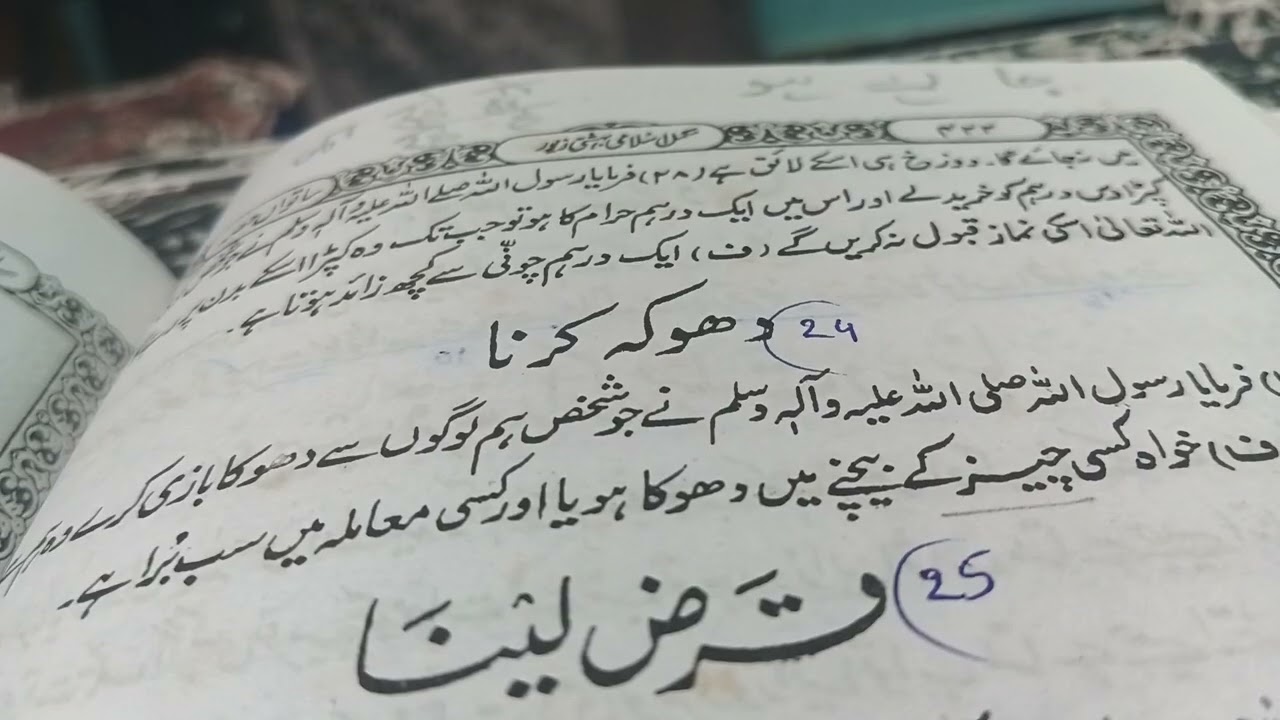 ۴۲۲ مکمل اسلامی بہشتی زیور ساتواں
میں نہ جائے گا۔ دوزخ ہی اسکے لائق ہے (۲۸) فرمایا رسول اللہ صلے اللہ علیہ وآلہ وسلم نے جو
کپڑا دس درہم کو خریدے اور اس میں ایک درہم حرام کا ہو تو جب تک وہ کپڑا اسکے بدن پر
اللہ تعالیٰ اسکی نماز قبول نہ کریں گے (ف) ایک درہم چونّی سے کچھ زائد ہوتا ہے۔
دھوکہ کرنا 24
) فرمایا رسول اللہ صلی اللہ علیہ وآلہٖ وسلم نے جو شخص ہم لوگوں سے دھوکا بازی کرے وہ ہم
ف) خواہ کسی چیز کے بیچنے میں دھوکا ہو یا اور کسی معاملہ میں سب بُرا ہے۔
قرض لینا 25